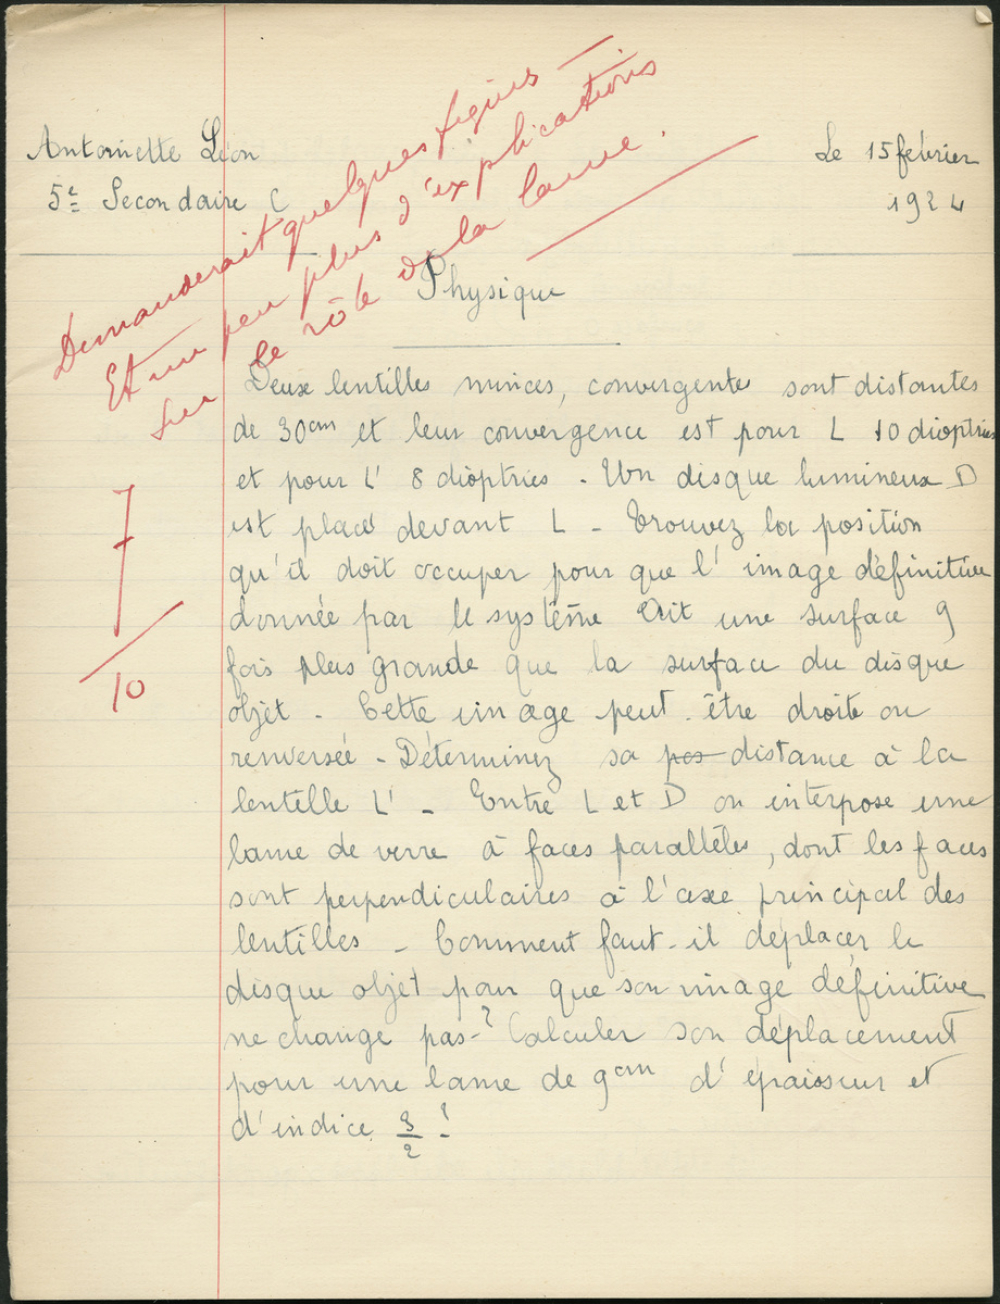 Antoinette Léon
5e Secondaire C
Le 15 février
1924
Demanderait quelques figures
Et un peu plus d'explications
sur le rôle de la lame.
Physique
7
10
Deux lentilles minces, convergentes sont distantes
de 30cm et leur convergence est pour L 10 dioptries
et pour L' 8 dioptries - Un disque lumineux D
est placé devant L - Trouvez la position
qu'il doit occuper pour que l'image définitive
donnée par le système ait une surface 9
fois plus grande que la surface du disque
objet - Cette image peut-être droite ou
renversée - Déterminez sa pos distance à la
lentille L' - Entre L et D on interpose une
lame de verre à faces parallèles, dont les faces
sont perpendiculaires à l'axe principal des
lentilles - Comment faut-il déplacer le
disque objet pour que son image définitive
ne change pas-? Calculer son déplacement
pour une lame de 9cm d'épaisseur et
d'indice 3/2 -!